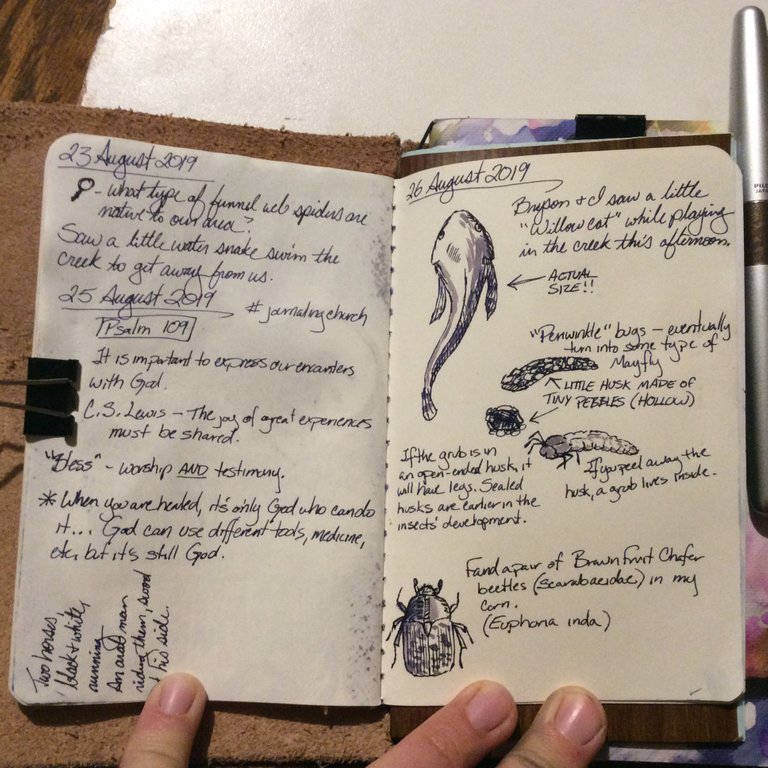 23 August 2019
- what type of funnel web spiders are
native to our area?
Saw a little water snake swim the
creek to get away from us.
25 August 2019
# journalingchurch
Psalm 109
It is important to express our encounters
with God.
C.S. Lewis - The joy of great experiences
must be shared.
"Bless" - worship AND testimony.
* When you are healed, it's only God who can do
it... God can use different tools, medicine,
etc, but it's still God.
Two horses,
black + white,
running.
An arab man
riding them, sword
@ his side.
26 August 2019
Bryson + I saw a little
"Willow cat" while playing
in the creek this afternoon.
ACTUAL
SIZE!!
"Periwinkle" bugs - eventually
turn into some type of
Mayfly
LITTLE HUSK MADE OF
TINY PEBBLES (HOLLOW)
If the grub is in
an open-ended husk, it
will have legs. Sealed
husks are earlier in the
insects' development.
If you peel away the
husk, a grub lives inside.
Found a pair of Brown Fruit Chafer
beetles (scarabaeidae) in my
corn.
(Euphoria inda)
PILOT
JAPAN